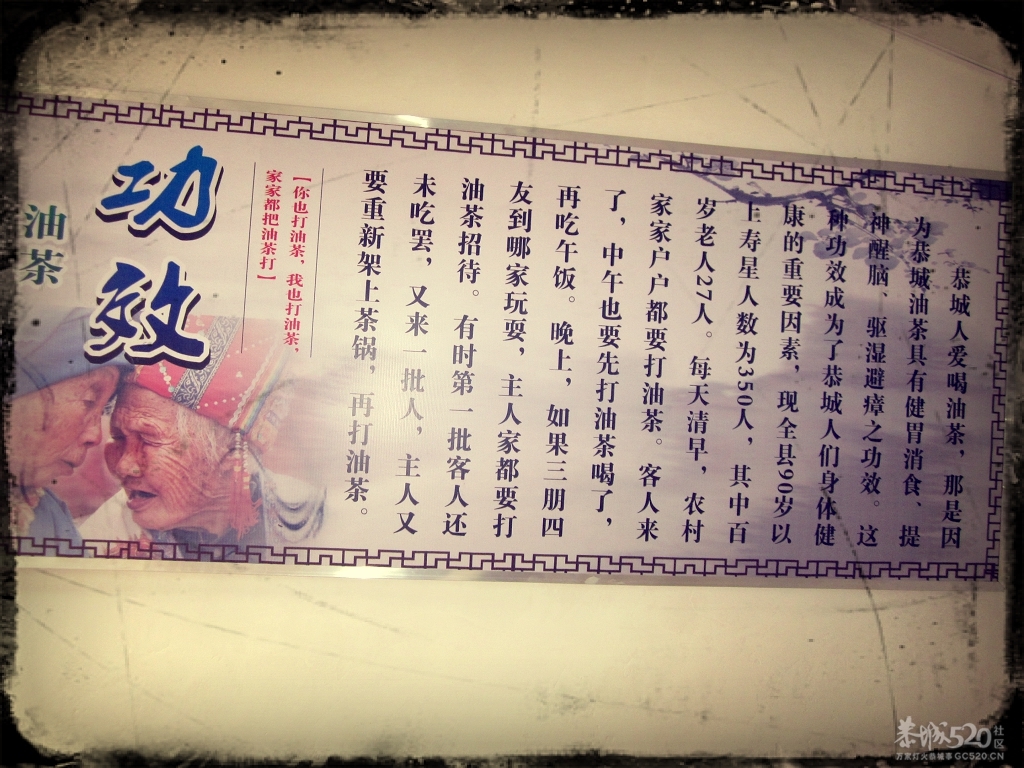 油茶
功效
【你也打油茶，我也打油茶，
家家都把油茶打】
恭城人爱喝油茶，那是因
为恭城油茶具有健胃消食、提
神醒脑、驱湿避瘴之功效。这
种功效成为了恭城人们身体健
康的重要因素，现全县90岁以
上寿星人数为350人，其中百
岁老人27人。每天清早，农村
家家户户都要打油茶。客人来
了，中午也要先打油茶喝了，
再吃午饭。晚上，如果三朋四
友到哪家玩耍，主人家都要打
油茶招待。有时第一批客人还
未吃罢，又来一批人，主人又
要重新架上茶锅，再打油茶。
恭城520社区
万家灯火恭城事GC520.CN